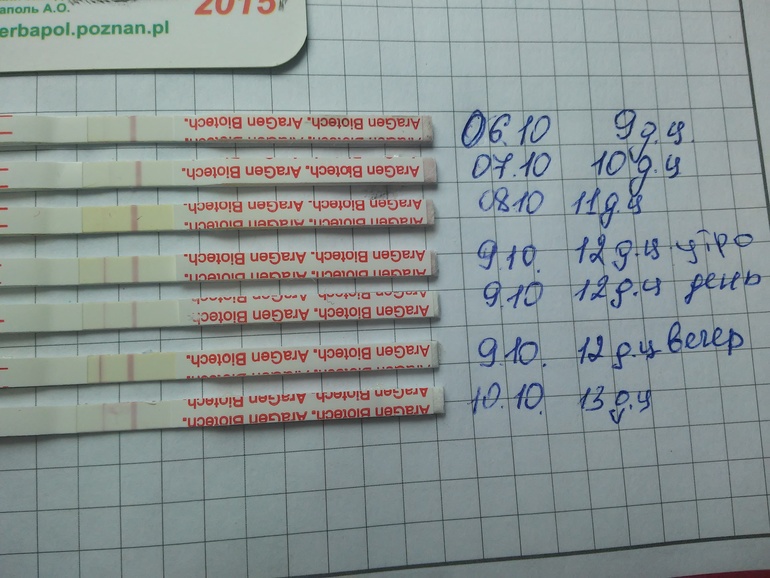 аполь А.О.
2015
erbapol.poznan.pl
AraGen Biotech. AraGen Biotech. 06.10 9 д.ц.
AraGen Biotech. AraGen Biotech. 07.10 10 д.ц
AraGen Biotech. AraGen Biotech. 0810 11 д.ц
AraGen Biotech. AraGen Biotech. 9.10. 12 д.ц утро
AraGen Biotech. AraGen Biotech. 9.10 12 д.ц день
AraGen Biotech. AraGen Biotech. 9.10. 12 д.ц вечер
AraGen Biotech. AraGen Biotech. 10.10. 13 д.ц